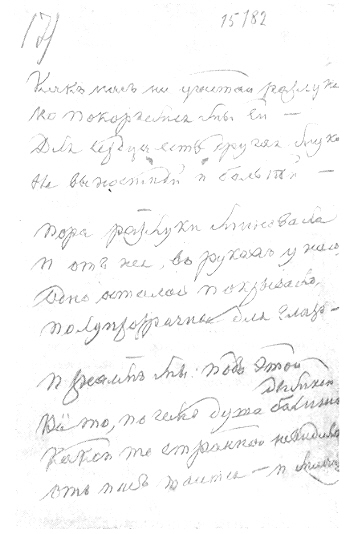 17)
15/82
Какъ насъ ни угнетай разлука
Но покоряемся мы ей —
Для сердца есть другая мука
Невыносимѣй и больнѣй —
Пора разлуки миновала
И отъ нея, въ рукахъ у насъ
Одно осталось покрывало
Полупрозрачное для глазъ —
И знаемъ мы: подъ этой дымкой
Все то, по чемъ душа болитъ
Какой то странной невидимкой
Отъ насъ таится — и молчитъ